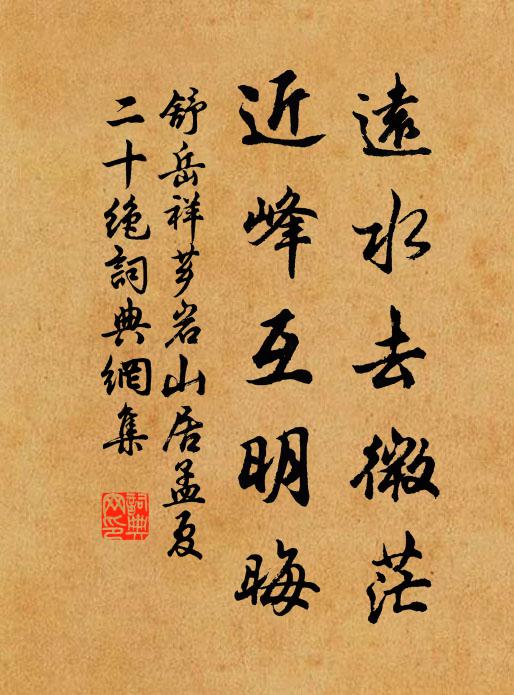 遠水去微茫
近峰互明晦
舒岳祥芗岩山居孟夏
二十绝詞典網集
詞典網印